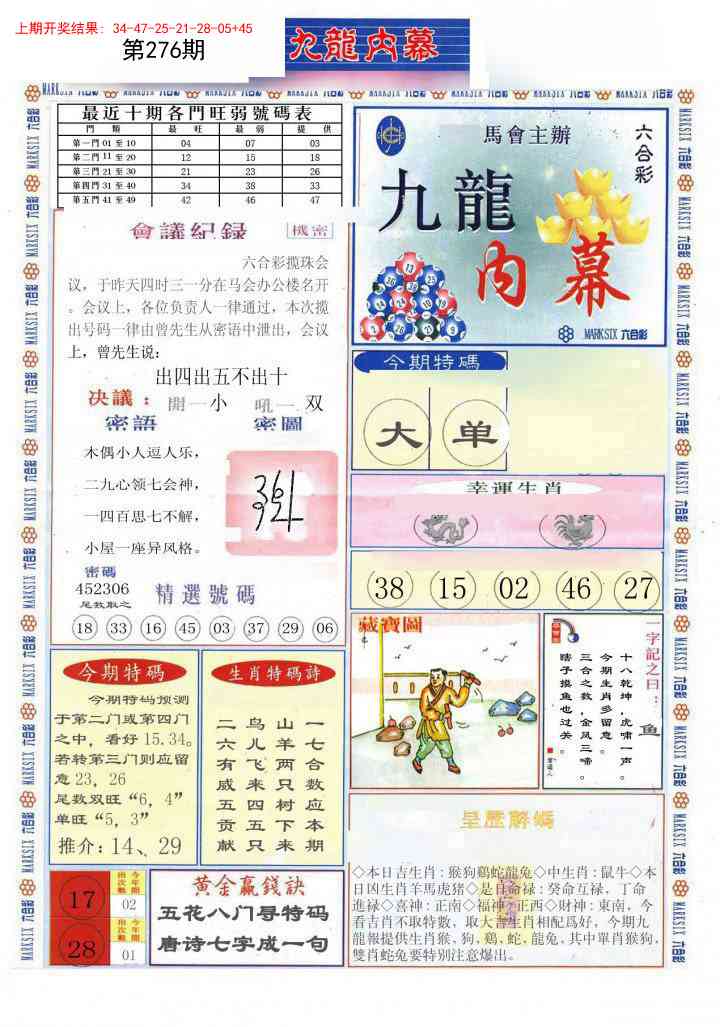 上期开奖结果: 34-47-25-21-28-05+45
第276期
九龍内幕
最近十期各門旺弱號碼表
門 類 最 旺 最 弱 提 供
第一門 01 至 10 04 07 03
第二門 11 至 20 12 15 18
第三門 21 至 30 21 23 26
第四門 31 至 40 34 38 33
第五門 41 至 49 42 46 47
會議紀録 機密
六合彩揽珠会
议，于昨天四时三一分在马会办公楼名开
。会议上，各位负责人一律通过，本次揽
出号码一律由曾先生从密语中泄出，会议
上，曾先生说：
出四出五不出十
决議：開一小 吼一双
密語 密圖
木偶小人逗人乐，
二九心领七会神，
一四百思七不解，
小屋一座异风格。
密碼
452306
尾数取之
精選號碼
18 33 16 45 03 37 29 06
馬會主辦
六合彩
九龍
内幕
MARKSIX 六合彩
今期特碼
大 单
幸運生肖
38 15 02 46 27
藏寶圖
一字記之曰：鱼
十八乾坤，虎啸一声。
今期生肖多留意。
三合之数，金凤三啼。
瞎子摸鱼也过关。
今期特碼
今期特码预测
于第二门或第四门
之中，看好 15.34。
若转第三门则应留
意 23，26
尾数双旺“6，4”
单旺“5，3”
推介：14、29
生肖特碼詩
一七合数应本期
山羊两只村下来
鸟儿飞来四五只
二六有威五贡献
17 今年開出次數 02
28 今年開出次數 01
黄金贏錢訣
五花八门寻特码
唐诗七字成一句
呈歷解碼
◇本日吉生肖：猴狗鷄蛇龍兔◇中生肖：鼠牛◇本
日凶生肖羊馬虎猪◇是日命禄：癸命互禄，丁命
進禄◇喜神：正南◇福神：正西◇财神：東南，今
看吉肖不取特數，取大吉生肖相配爲好，今期九
龍報提供生肖猴，狗，鷄，蛇，龍兔，其中單肖猴狗，
雙肖蛇兔要特别注意爆出。